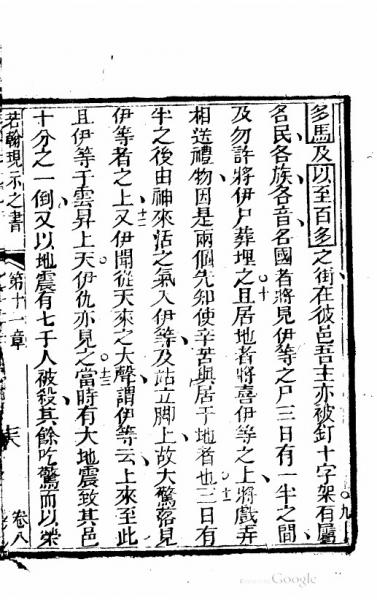 多馬及以至百多之街在彼邑吾主亦被釘十字架有屬
九
各民各族各音各國者將見伊等之尸三日有一半之間
及勿許將伊尸葬埋之且居地者將喜伊等之上將戲弄
十
相送禮物因是兩個先知使辛苦與居于地者也三日有
十一
半之後由神來活之氣入伊等及站立脚上故大驚落見
伊等者之上又伊聞從天來之大聲謂伊等云上來至此
十二
且伊等于雲昇上天伊仇亦見之當時有大地震致其邑
十三
十分之一倒又以地震有七千人被殺其餘吃驚而以榮
若翰現示之書
第十一章
卷八
Google